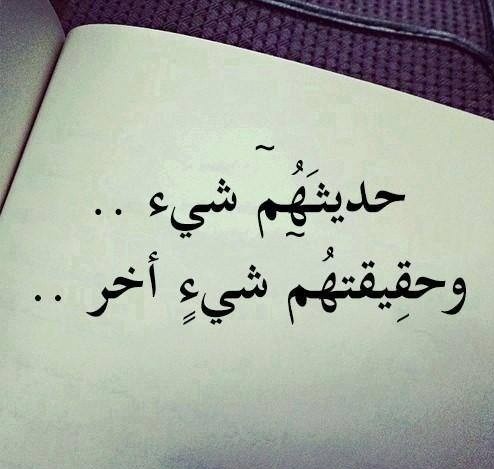 حديثَهُِمّ شيء ..
وحقِيقتهُمّ شيءٍ أخر ..